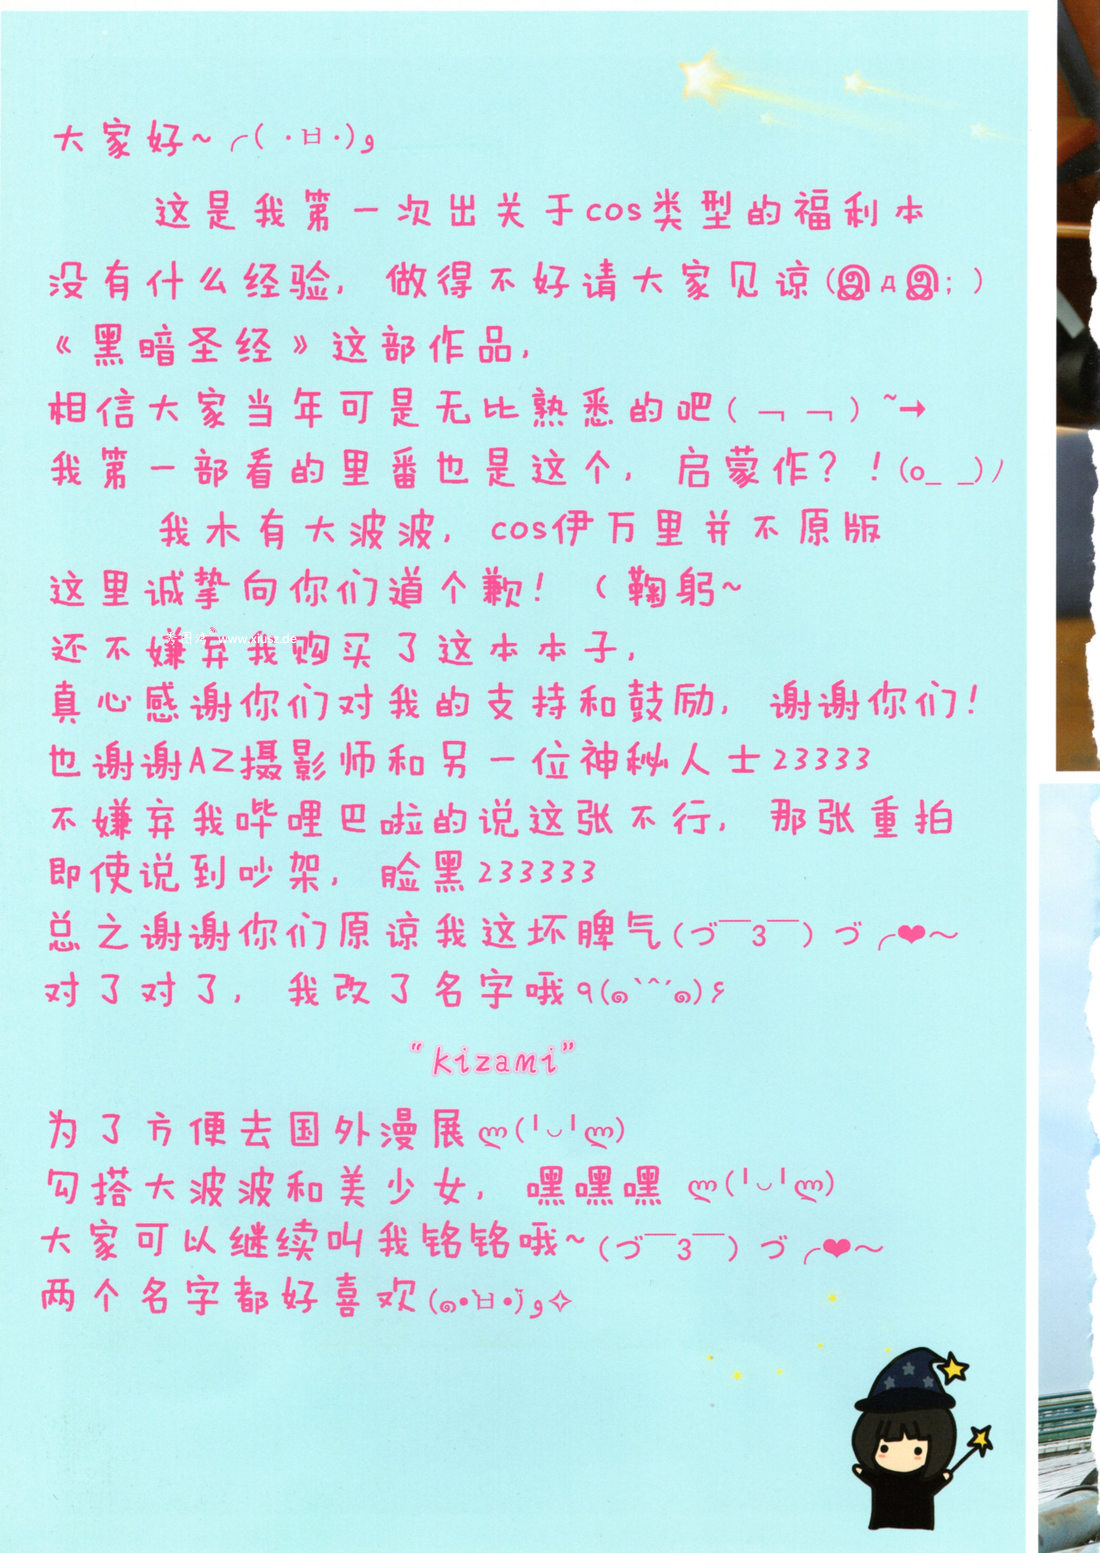 大家好~╭( ･ㅂ･)و
这是我第一次出关于cos类型的福利本
没有什么经验，做得不好请大家见谅(இдஇ; )
《黑暗圣经》这部作品，
相信大家当年可是无比熟悉的吧( ﹁ ﹁ ) ~→
我第一部看的里番也是这个，启蒙作？！(o_ _)ﾉ
我木有大波波，cos伊万里并不原版
这里诚挚向你们道个歉！（鞠躬~
还不嫌弃我购买了这本本子，
www.xiusz.de
真心感谢你们对我的支持和鼓励，谢谢你们！
也谢谢AZ摄影师和另一位神秘人士23333
不嫌弃我哔哩巴啦的说这张不行，那张重拍
即使说到吵架，脸黑233333
总之谢谢你们原谅我这坏脾气(づ￣3￣) づ╭❤～
对了对了，我改了名字哦٩(๑`^´๑)۶
“kizami”
为了方便去国外漫展ლ(╹◡╹ლ)
勾搭大波波和美少女，嘿嘿嘿 ლ(╹◡╹ლ)
大家可以继续叫我铭铭哦~(づ￣3￣) づ╭❤～
两个名字都好喜欢(๑•̀ㅂ•́)و✧